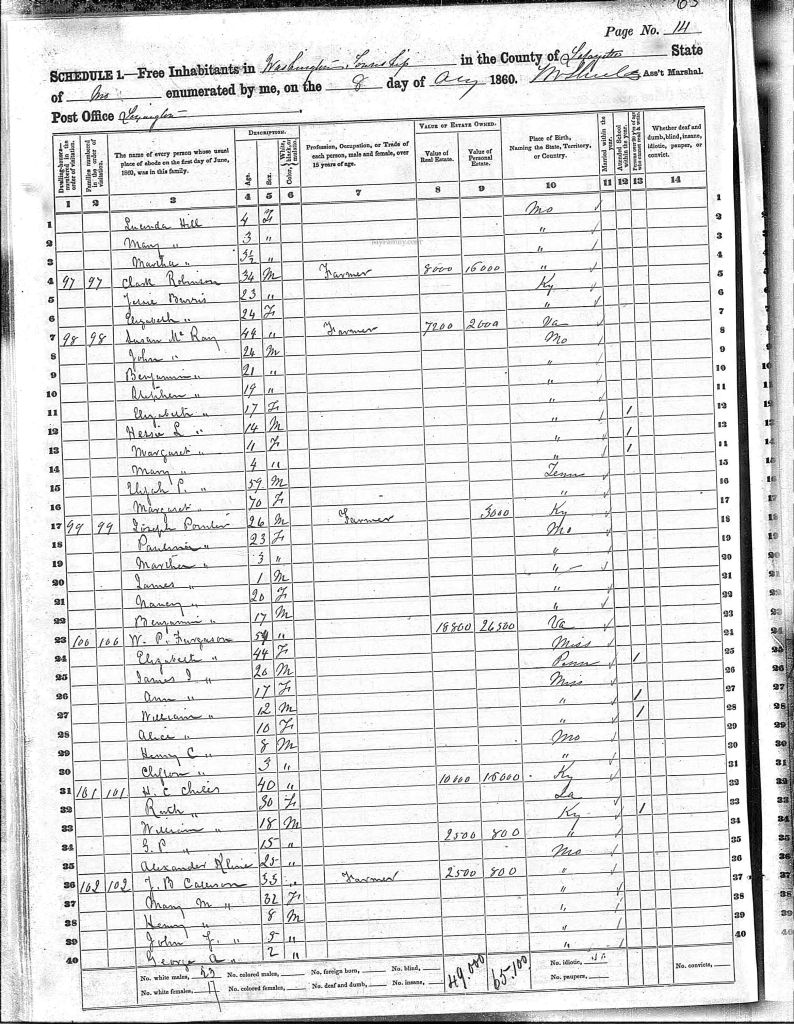 Page No. 14
SCHEDULE 1.—Free Inhabitants in Washington Township in the County of Lafayette State
of Mo enumerated by me, on the 8 day of Aug 1860. Ass't Marshal.
Post Office Lexington
Dwelling-houses— numbered in the order of visitation.
Families numbered in the order of visitation.
The name of every person whose usual place of abode on the first day of June, 1860, was in this family.
DESCRIPTION.
Age.
Sex.
Color, White, black, or mulatto.
Profession, Occupation, or Trade of each person, male and female, over 15 years of age.
VALUE OF ESTATE OWNED.
Value of Real Estate.
Value of Personal Estate.
Place of Birth, Naming the State, Territory, or Country.
Married within the year.
Attended School within the year.
Persons over 20 y'rs of age who cannot read & write.
Whether deaf and dumb, blind, insane, idiotic, pauper, or convict.
1 2 3 4 5 6 7 8 9 10 11 12 13 14
1 Lucinda Hill 4 F Mo
2 Mary " 3 " "
3 Martha " " "
4 97 97 Clark Robinson 34 M Farmer 8000 16000 "
5 Burris 23 " Ky
6 Elizabeth " 24 F "
7 98 98 Susan Mc Ray 44 " Farmer 7200 2000 Va
8 John " 24 M Mo
9 Benjamin " 21 " "
10 Stephen " 19 " "
11 Elizabeth " 17 F "
12 L " 14 M " 1
13 Margaret " 11 F " 1
14 Mary " 4 " " 1
15 Elijah P. " 59 M Tenn
16 Margaret " 70 F "
17 99 99 Joseph 26 M Farmer 3000 Ky
18 " 23 F Mo
19 Martha " 3 " "
20 James " 1 M "
21 Nancy " 20 F "
22 Benjamin " 17 M "
23 100 100 W. P. Furgason 59 " 18800 26500 Va
24 Elizabeth " 44 F Miss
25 James " 20 M Penn 1
26 Ann " 17 F Miss
27 William " 12 M " 1
28 Alice " 10 F " 1
29 Henry C " 8 M Mo
30 Clifton " 3 " "
31 101 101 H. C. Chiles 40 " 10000 16000 Ky
32 Ruth " 30 F La
33 William " 18 M Ky 1
34 G. P " 15 " 2500 800 "
35 Alexander Kline 25 " Mo
36 102 102 J. B 33 " Farmer 2500 800 "
37 Mary M " 32 F "
38 Henry " 8 M "
39 John F. " 5 " "
40 George A " 2 " "
No. white males, 23 No. colored males, No. foreign born, No. blind, 49.000 65.100 No. idiotic, No. convicts,
No. white females, 17 No. colored females, No. deaf and dumb, No. insane, No. paupers,